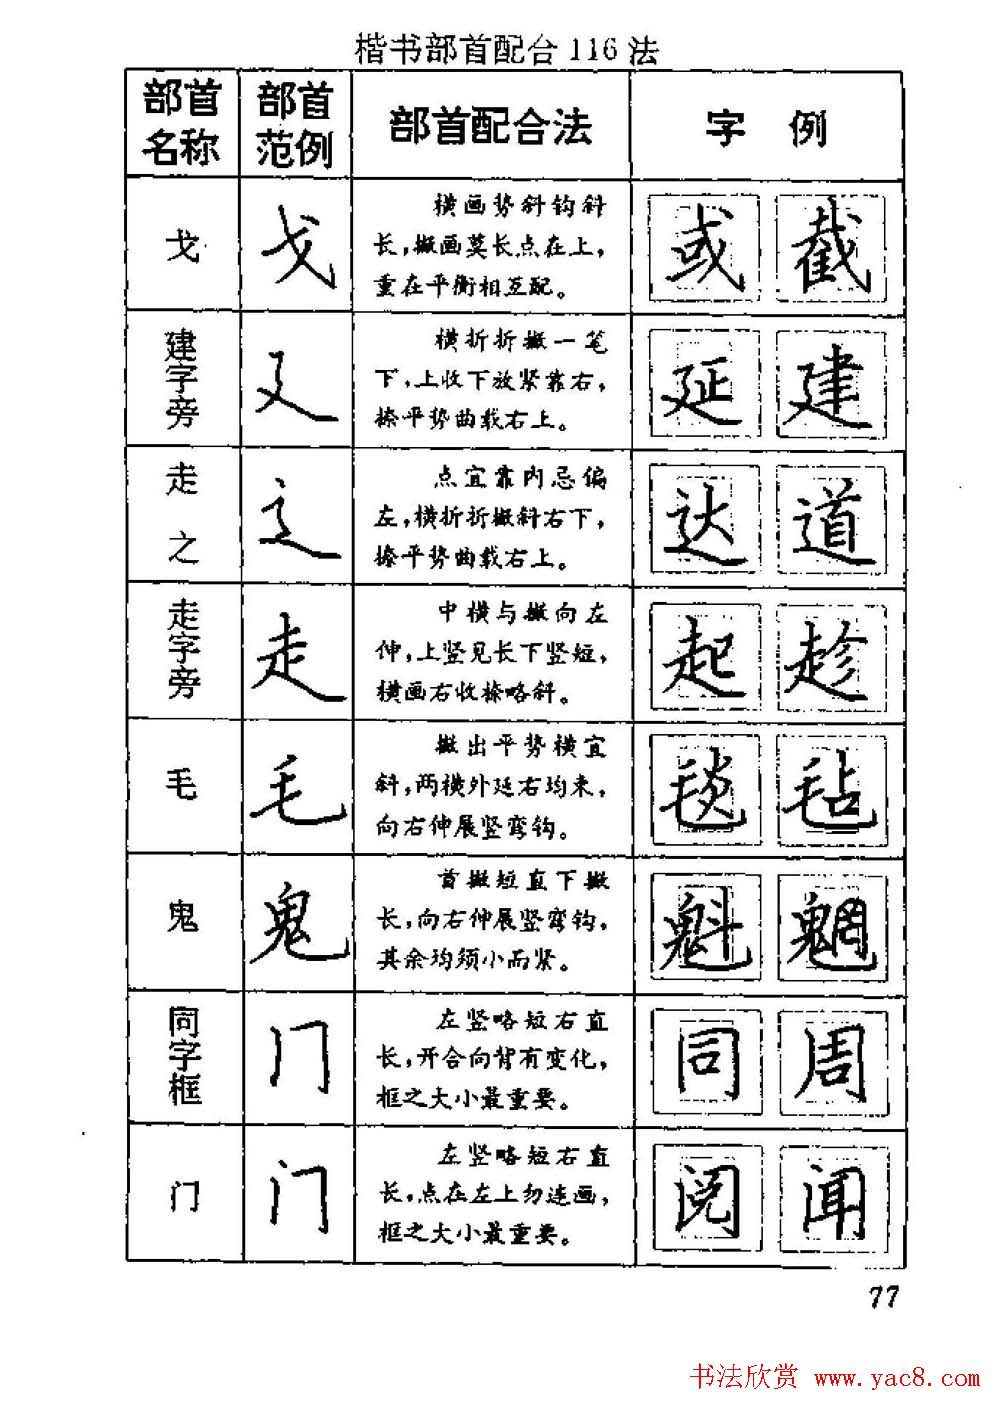 楷书部首配合116法
部首名称 部首范例 部首配合法 字 例
戈 戈 横画势斜钩斜 或 截
长，撇画莫长点在上，
重在平衡相互配。
建字旁 廴 横折折撇一笔 延 建
下，上收下放紧靠右，
捺平势曲载右上。
走之 辶 点宜靠内忌偏 达 道
左，横折折撇斜右下，
捺平势曲载右上。
走字旁 走 中横与撇向左 起 趁
伸，上竖见长下竖短，
横画右收捺略斜。
毛 毛 撇出平势横宜 毯 毡
斜，两横外延右均来，
向右伸展竖弯钩。
鬼 鬼 首撇短直下撇 魁 魍
长，向右伸展竖弯钩，
其余均须小而紧。
同字框 冂 左竖略短右直 同 周
长，开合向背有变化，
框之大小最重要。
门 门 左竖略短右直 阅 闻
长，点在左上勿连画，
框之大小最重要。
77
书法欣赏 www.yac8.com